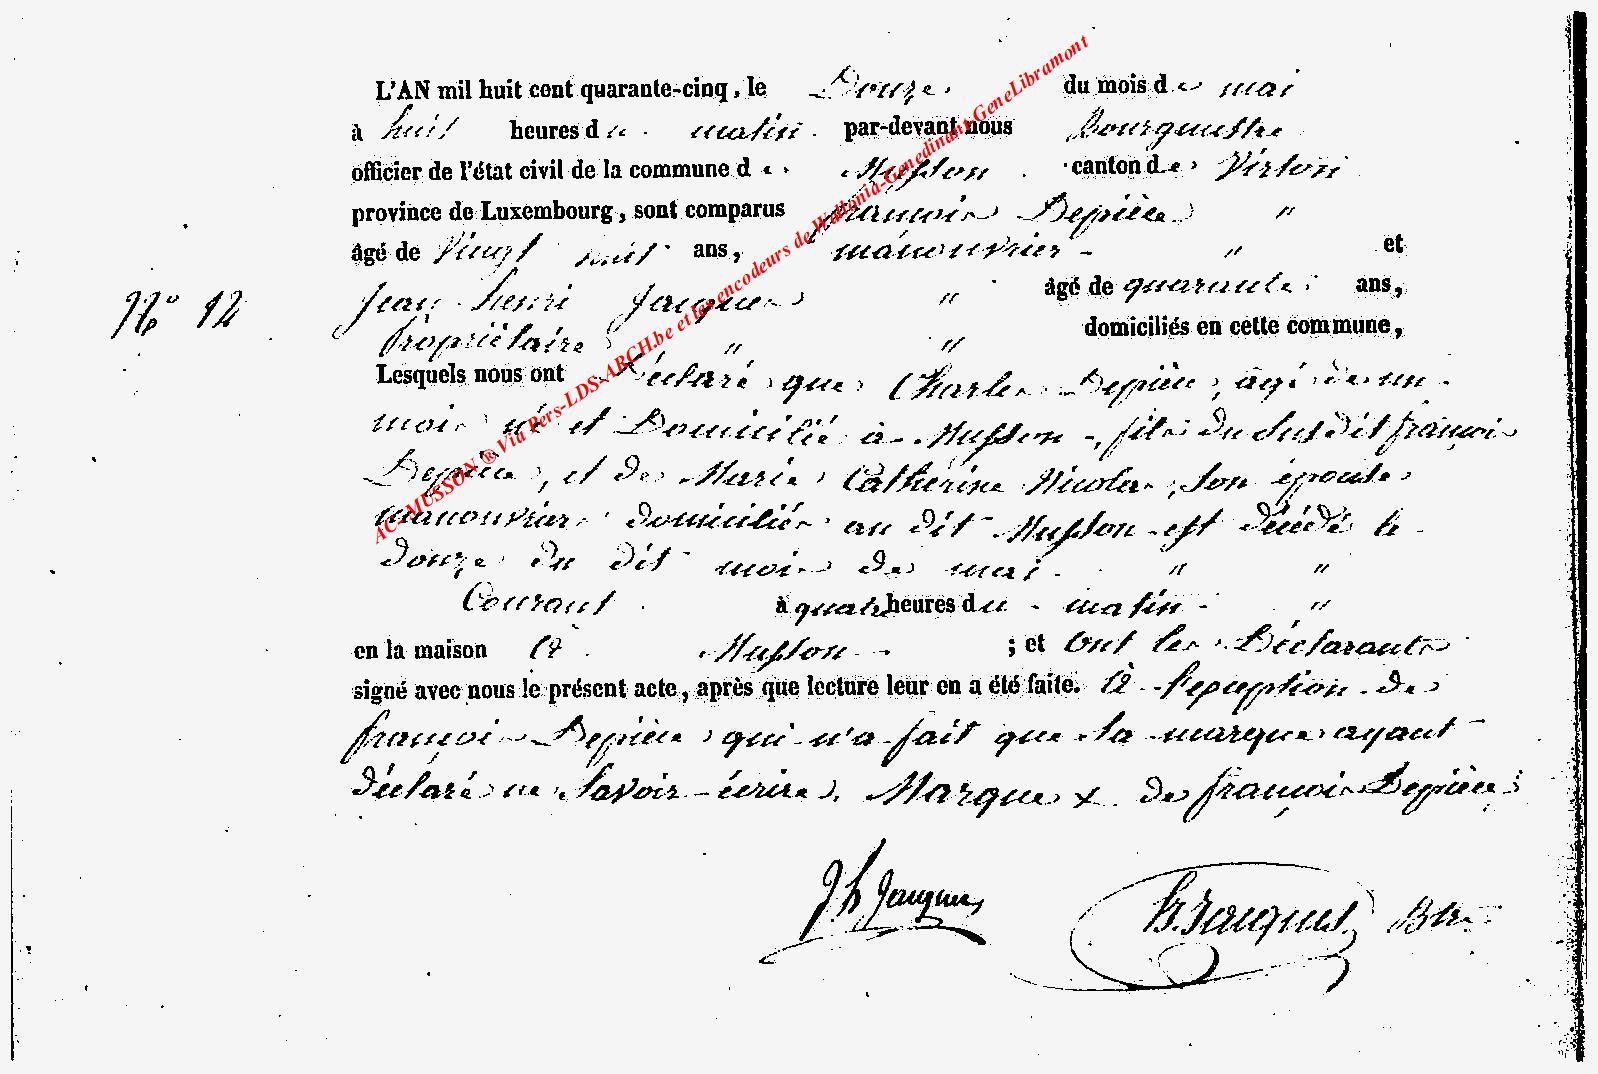 L'AN mil huit cent quarante-cinq, le Douze du mois de mai
à huit heures du matin par-devant nous Bourguestre
officier de l'état civil de la commune de Musson canton de Virton
province de Luxembourg, sont comparus françois Depièce "
âgé de Vingt huit ans, manouvrier " et
Jean henri Jacques " âgé de quarante ans,
N° 12
Propriétaire " " domiciliés en cette commune,
Lesquels nous ont Déclaré que Charles Depièce, agé de un
mois né et Domicilié à Musson, fils du Susdit françois
Depièce, et de Marie Catherine Nicolas, son épouse
manouvriers domiciliés au dit Musson est décédé le
douze du dit mois de mai " "
Courant à quatre heures du matin "
en la maison à Musson ; et ont les Déclarants
signé avec nous le présent acte, après que lecture leur en a été faite. à l'exception de
françois Depièce qui n'a fait que sa marque ayant
déclaré ne Savoir écrire. Marque x de françois Depièce
J h Jacques
H. Jacques Btre
AC-MUSSON ® Via Pers-LDS-ARCH.be et les encodeurs de Wallonia-Genedinant-GeneLibramont